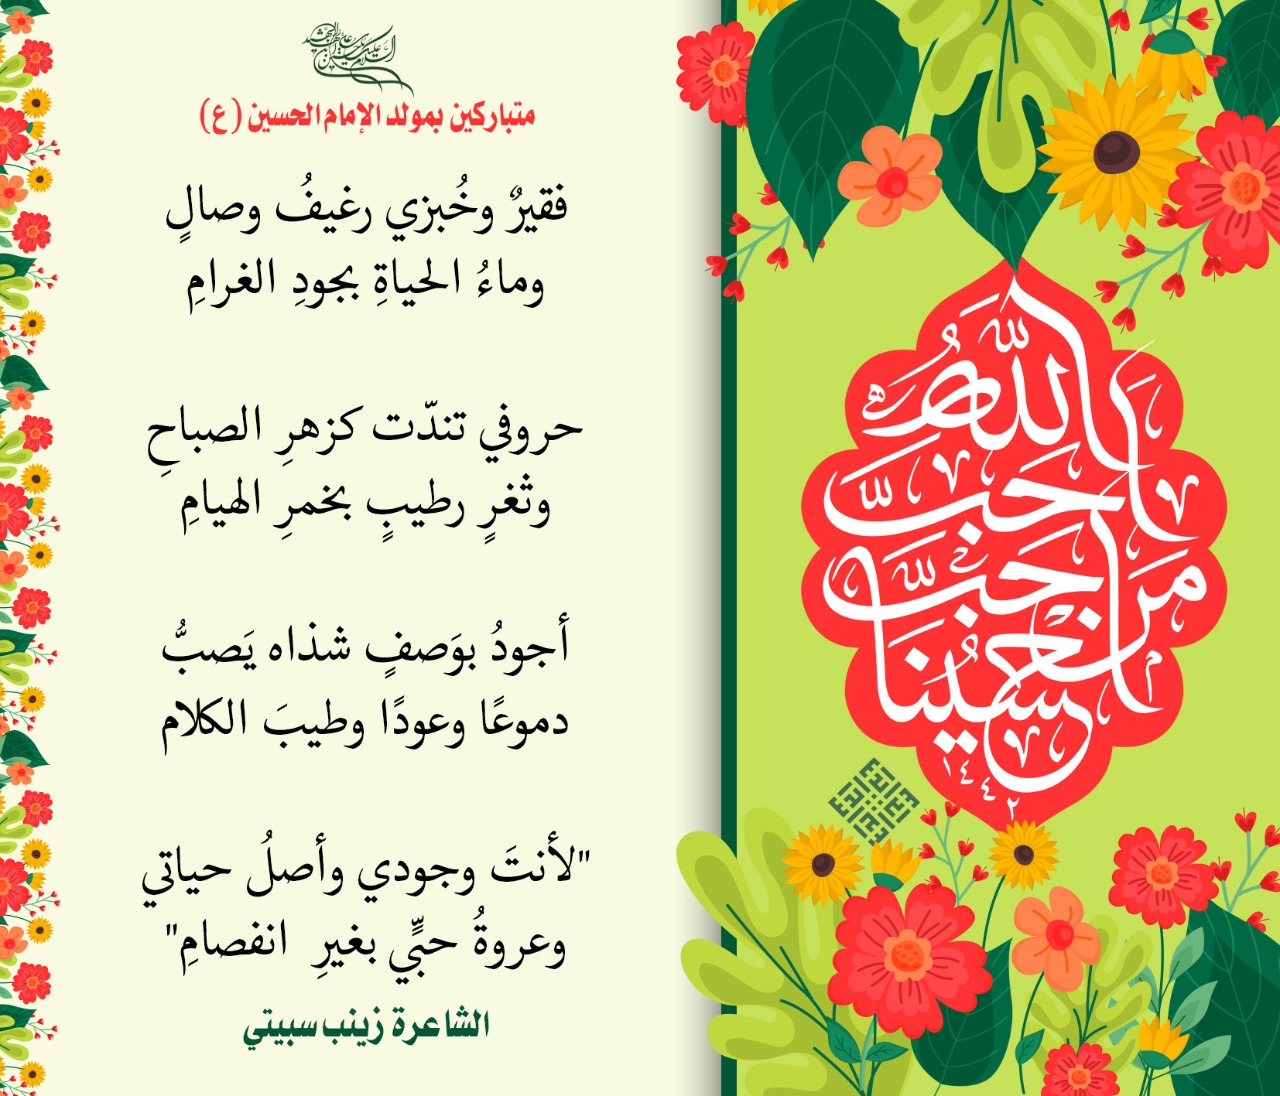 السلام عليك يا أبا عبد الله الحسين الشهيد
متباركين بمولد الإمام الحسين (ع)
فقيرٌ وخُبزي رغيفُ وصالٍ
وماءُ الحياةِ بجودِ الغرامِ
حروفي تندّت كزهرِ الصباحِ
وثغرٍ رطيبٍ بخمرِ الهيامِ
أجودُ بوَصفٍ شذاه يَصبُّ
دموعًا وعودًا وطيبَ الكلام
"لأنتَ وجودي وأصلُ حياتي
وعروةُ حبٍّي بغيرِ انفصامِ"
الشاعرة زينب سبيتي
أحب الله
من أحب
حسينا
١٤٤٢